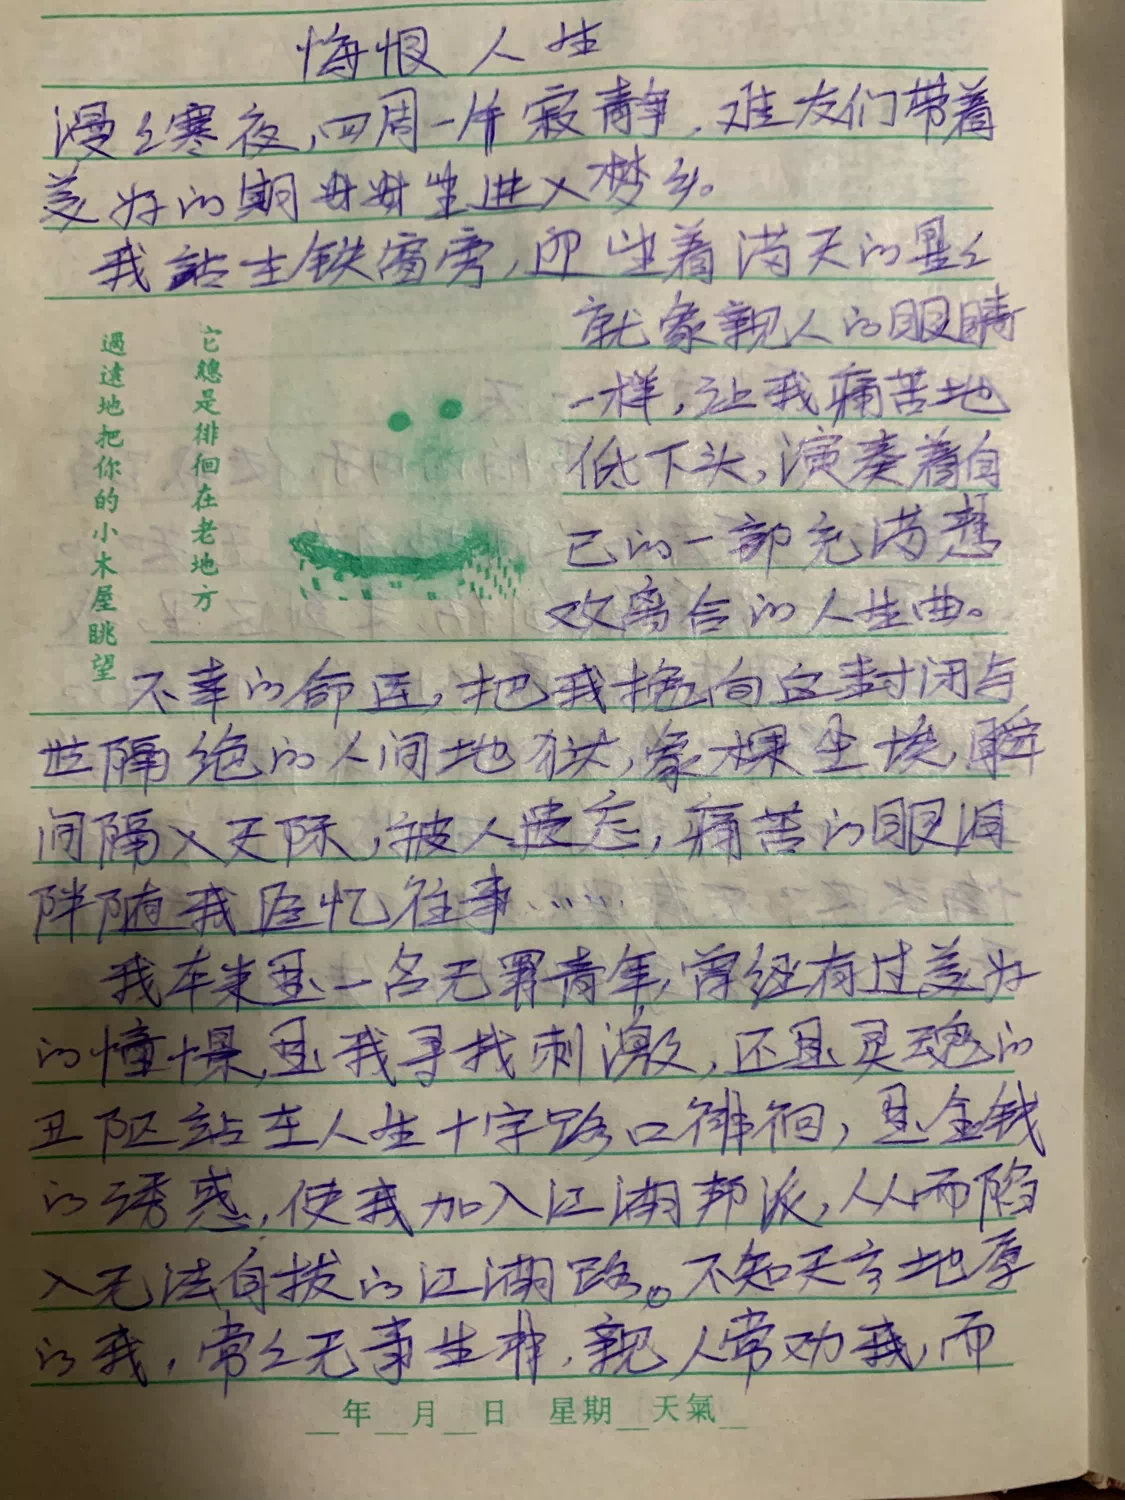 悔恨人生
漫々寒夜,四周一片寂静,难友们带着
美好的期 进入梦乡。
我站在铁窗旁,仰望着满天的星々
就象亲人的眼睛
一样,让我痛苦地
低下头,演奏着自
己的一部充满悲
欢离合的人生曲。
它總是徘徊在老地方
遥遠地把你的小木屋眺望
不幸的命运,把我拖向这封闭与
世隔绝的人间地狱,象棵尘埃,瞬
间隔入天际,被人遗忘,痛苦的眼泪
陪随我回忆往事……
我本来是一名无罪青年,曾经有过美好
的憧憬,是我寻找刺激,还是灵魂的
丑陋站在人生十字路口徘徊,是金钱
的诱惑,使我加入江湖邦派,从而陷
入无法自拔的江湖路。不知天高地厚
的我,常々无事生非,亲人常劝我,而
年 月 日 星期 天氣